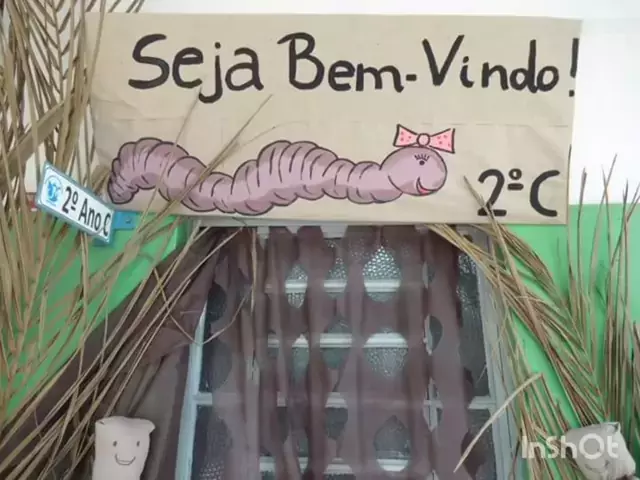 Seja Bem-Vindo!
2º C
2º Ano C
InShOt